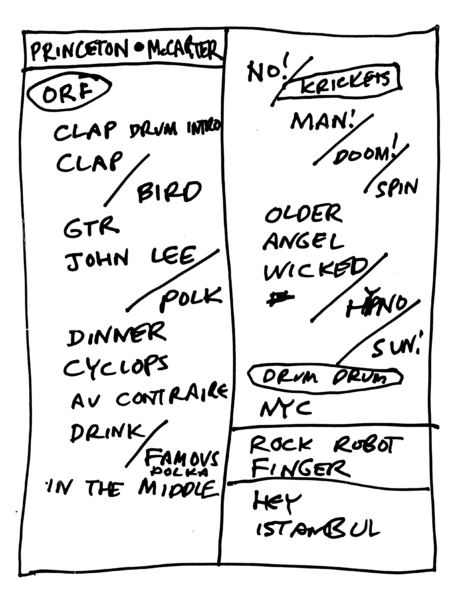 PRINCETON • McCARTER
ORF
CLAP DRUM INTRO
CLAP
BIRD
GTR
JOHN LEE
POLK
DINNER
CYCLOPS
AU CONTRAIRE
DRINK
FAMOUS
POLKA
IN THE MIDDLE
NO!
KRICKETS
MAN!
DOOM!
SPIN
OLDER
ANGEL
WICKED
HYPNO
SUN!
DRUM DRUM
NYC
ROCK ROBOT
FINGER
HEY
ISTAMBUL